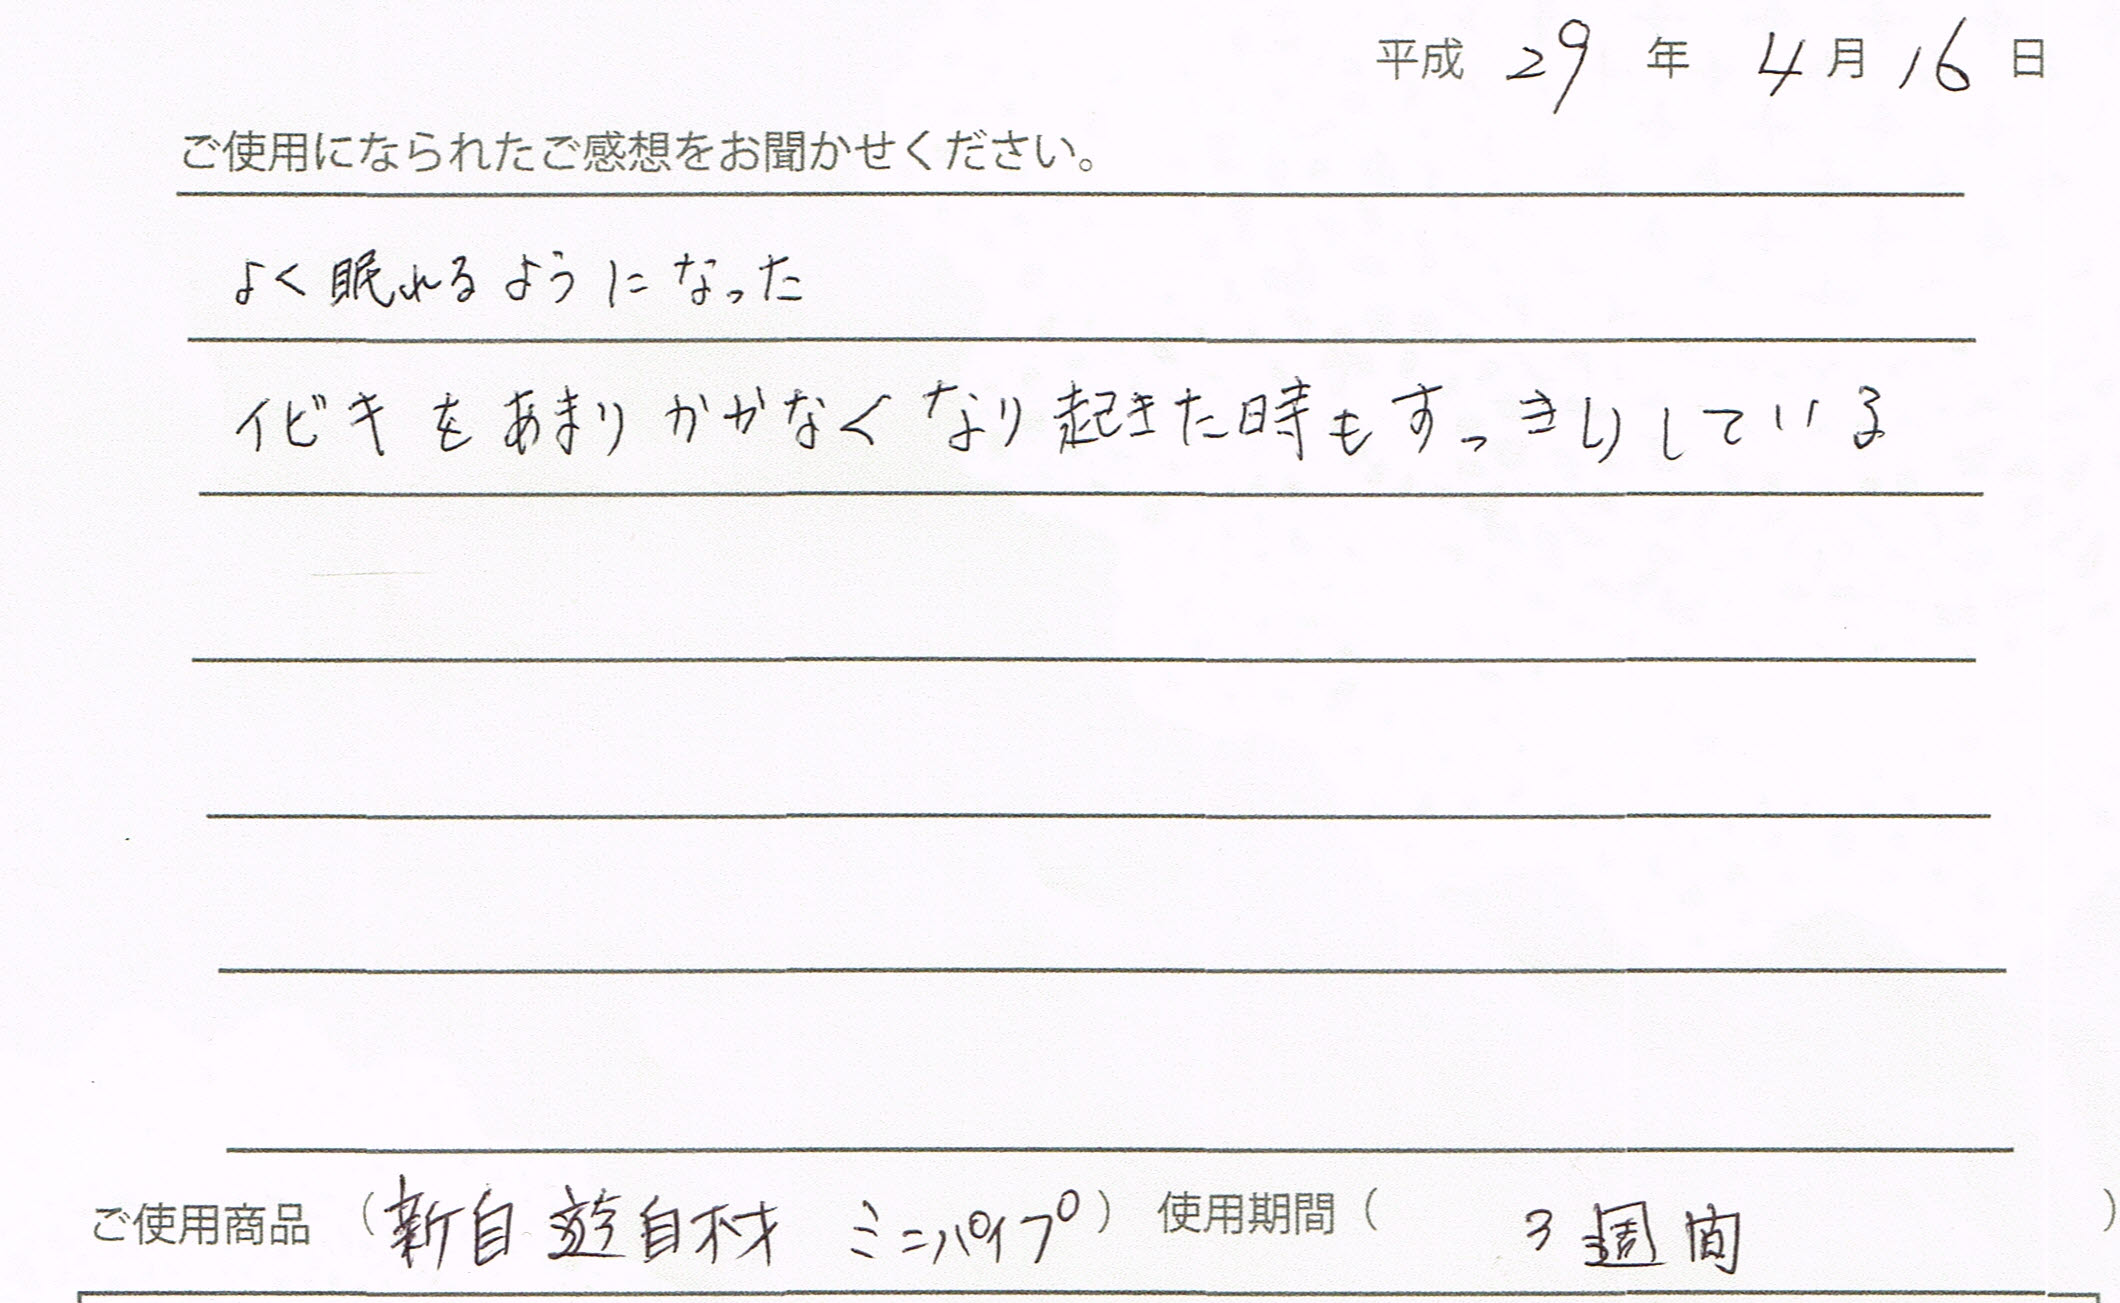 平成 29 年 4 月 16 日
ご使用になられたご感想をお聞かせください。
よく眠れるようになった
イビキをあまりかかなくなり起きた時もすっきりしている
ご使用商品 (新自遊自材 ミニパイプ) 使用期間 ( 3週間 )